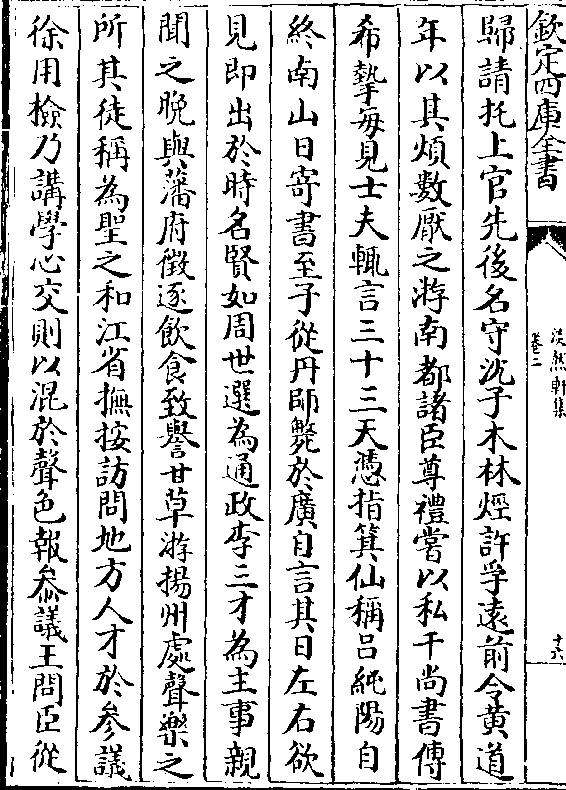 欽定四庫全書
淡然軒集
卷二
十六
歸請托上官先後名守沈子木林烴許孚遠前令黄道
年以其煩數厭之游南都諸臣尊禮嘗以私干尚書傅
希摯每見士夫輒言三十三天憑指箕仙稱吕純陽自
終南山日寄書至子從丹師斃於廣自言其日左右欲
見即出於時名賢如周世選為通政李三才為主事親
聞之晚與藩府徵逐飲食致譽甘草游揚州處聲樂之
所其徒稱為聖之和江省撫按訪問地方人才於参議
徐用檢乃講學心交則以混於聲色報参議王問臣從